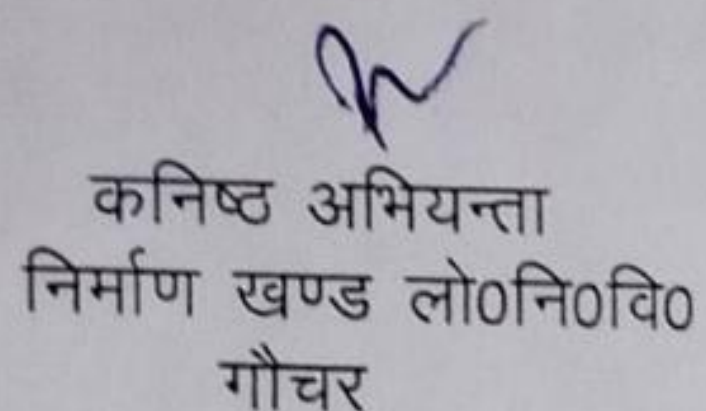 कनिष्ठ अभियन्ता
निर्माण खण्ड लो0नि0वि0
गौचर